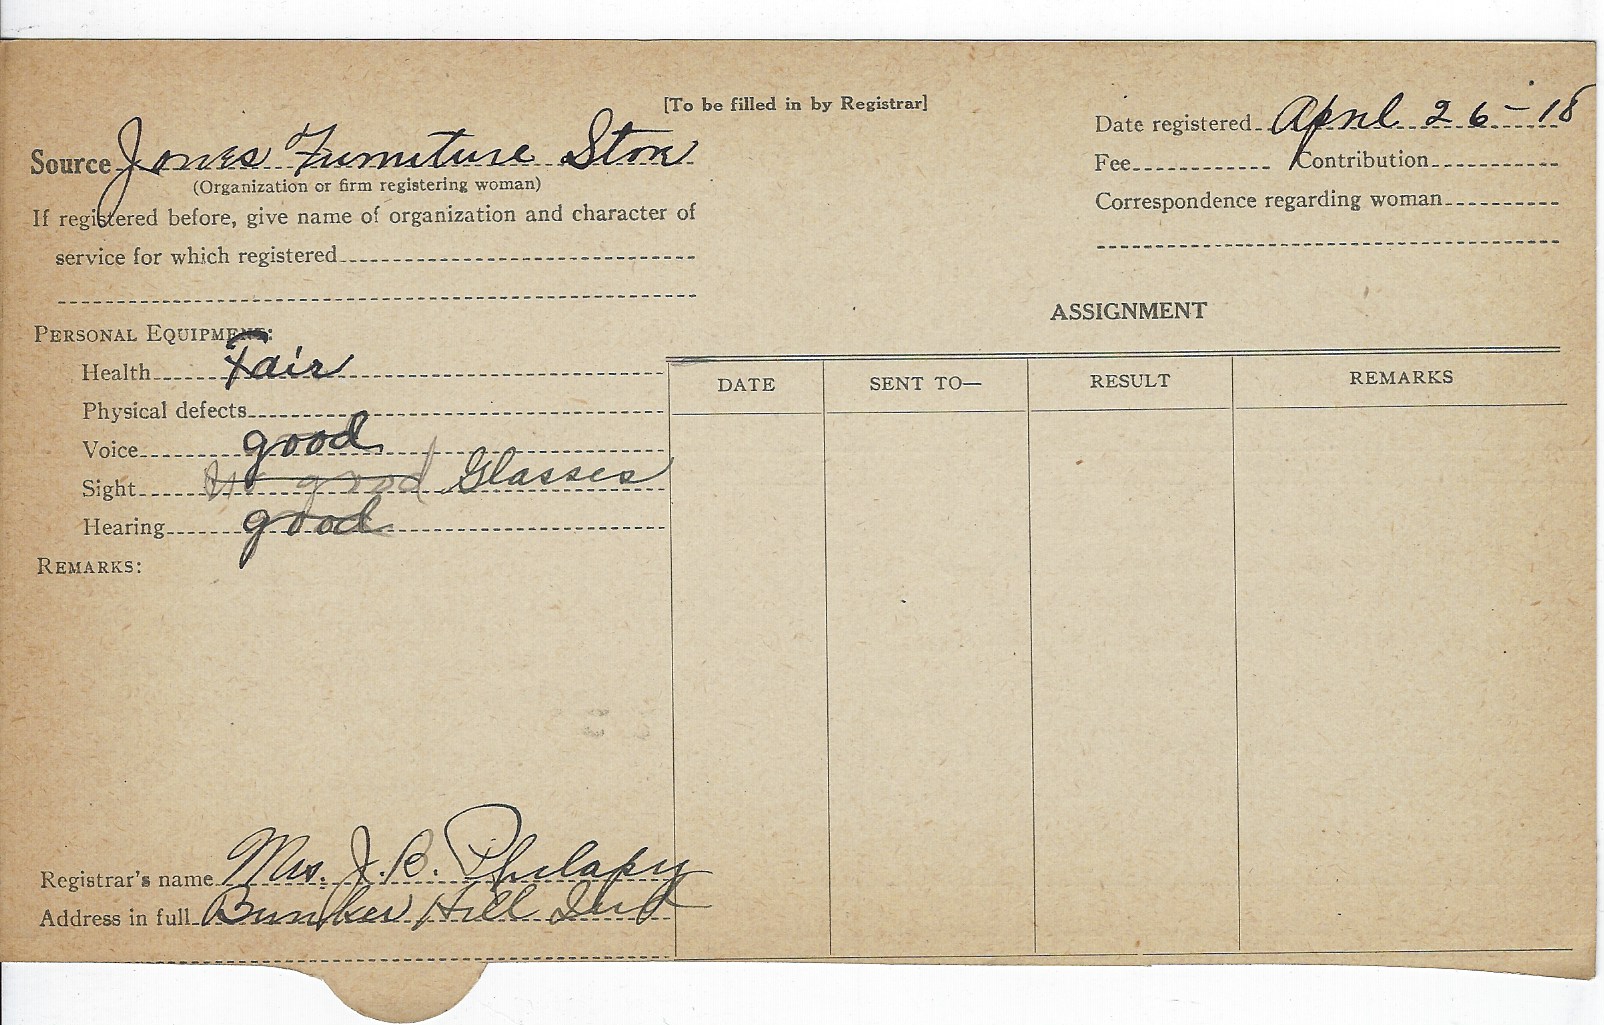 [To be filled in by Registrar]
Source Jones Furniture Store
(Organization or firm registering woman)
If registered before, give name of organization and character of
service for which registered
Date registered April 26-18
Fee Contribution
Correspondence regarding woman
PERSONAL EQUIPMENT:
Health Fair
Physical defects
Voice good
Sight good Glasses
Hearing good
REMARKS:
Registrar's name Mrs. J. B. Philapy
Address in full Bunker Hill Ind
ASSIGNMENT
DATE SENT TO— RESULT REMARKS